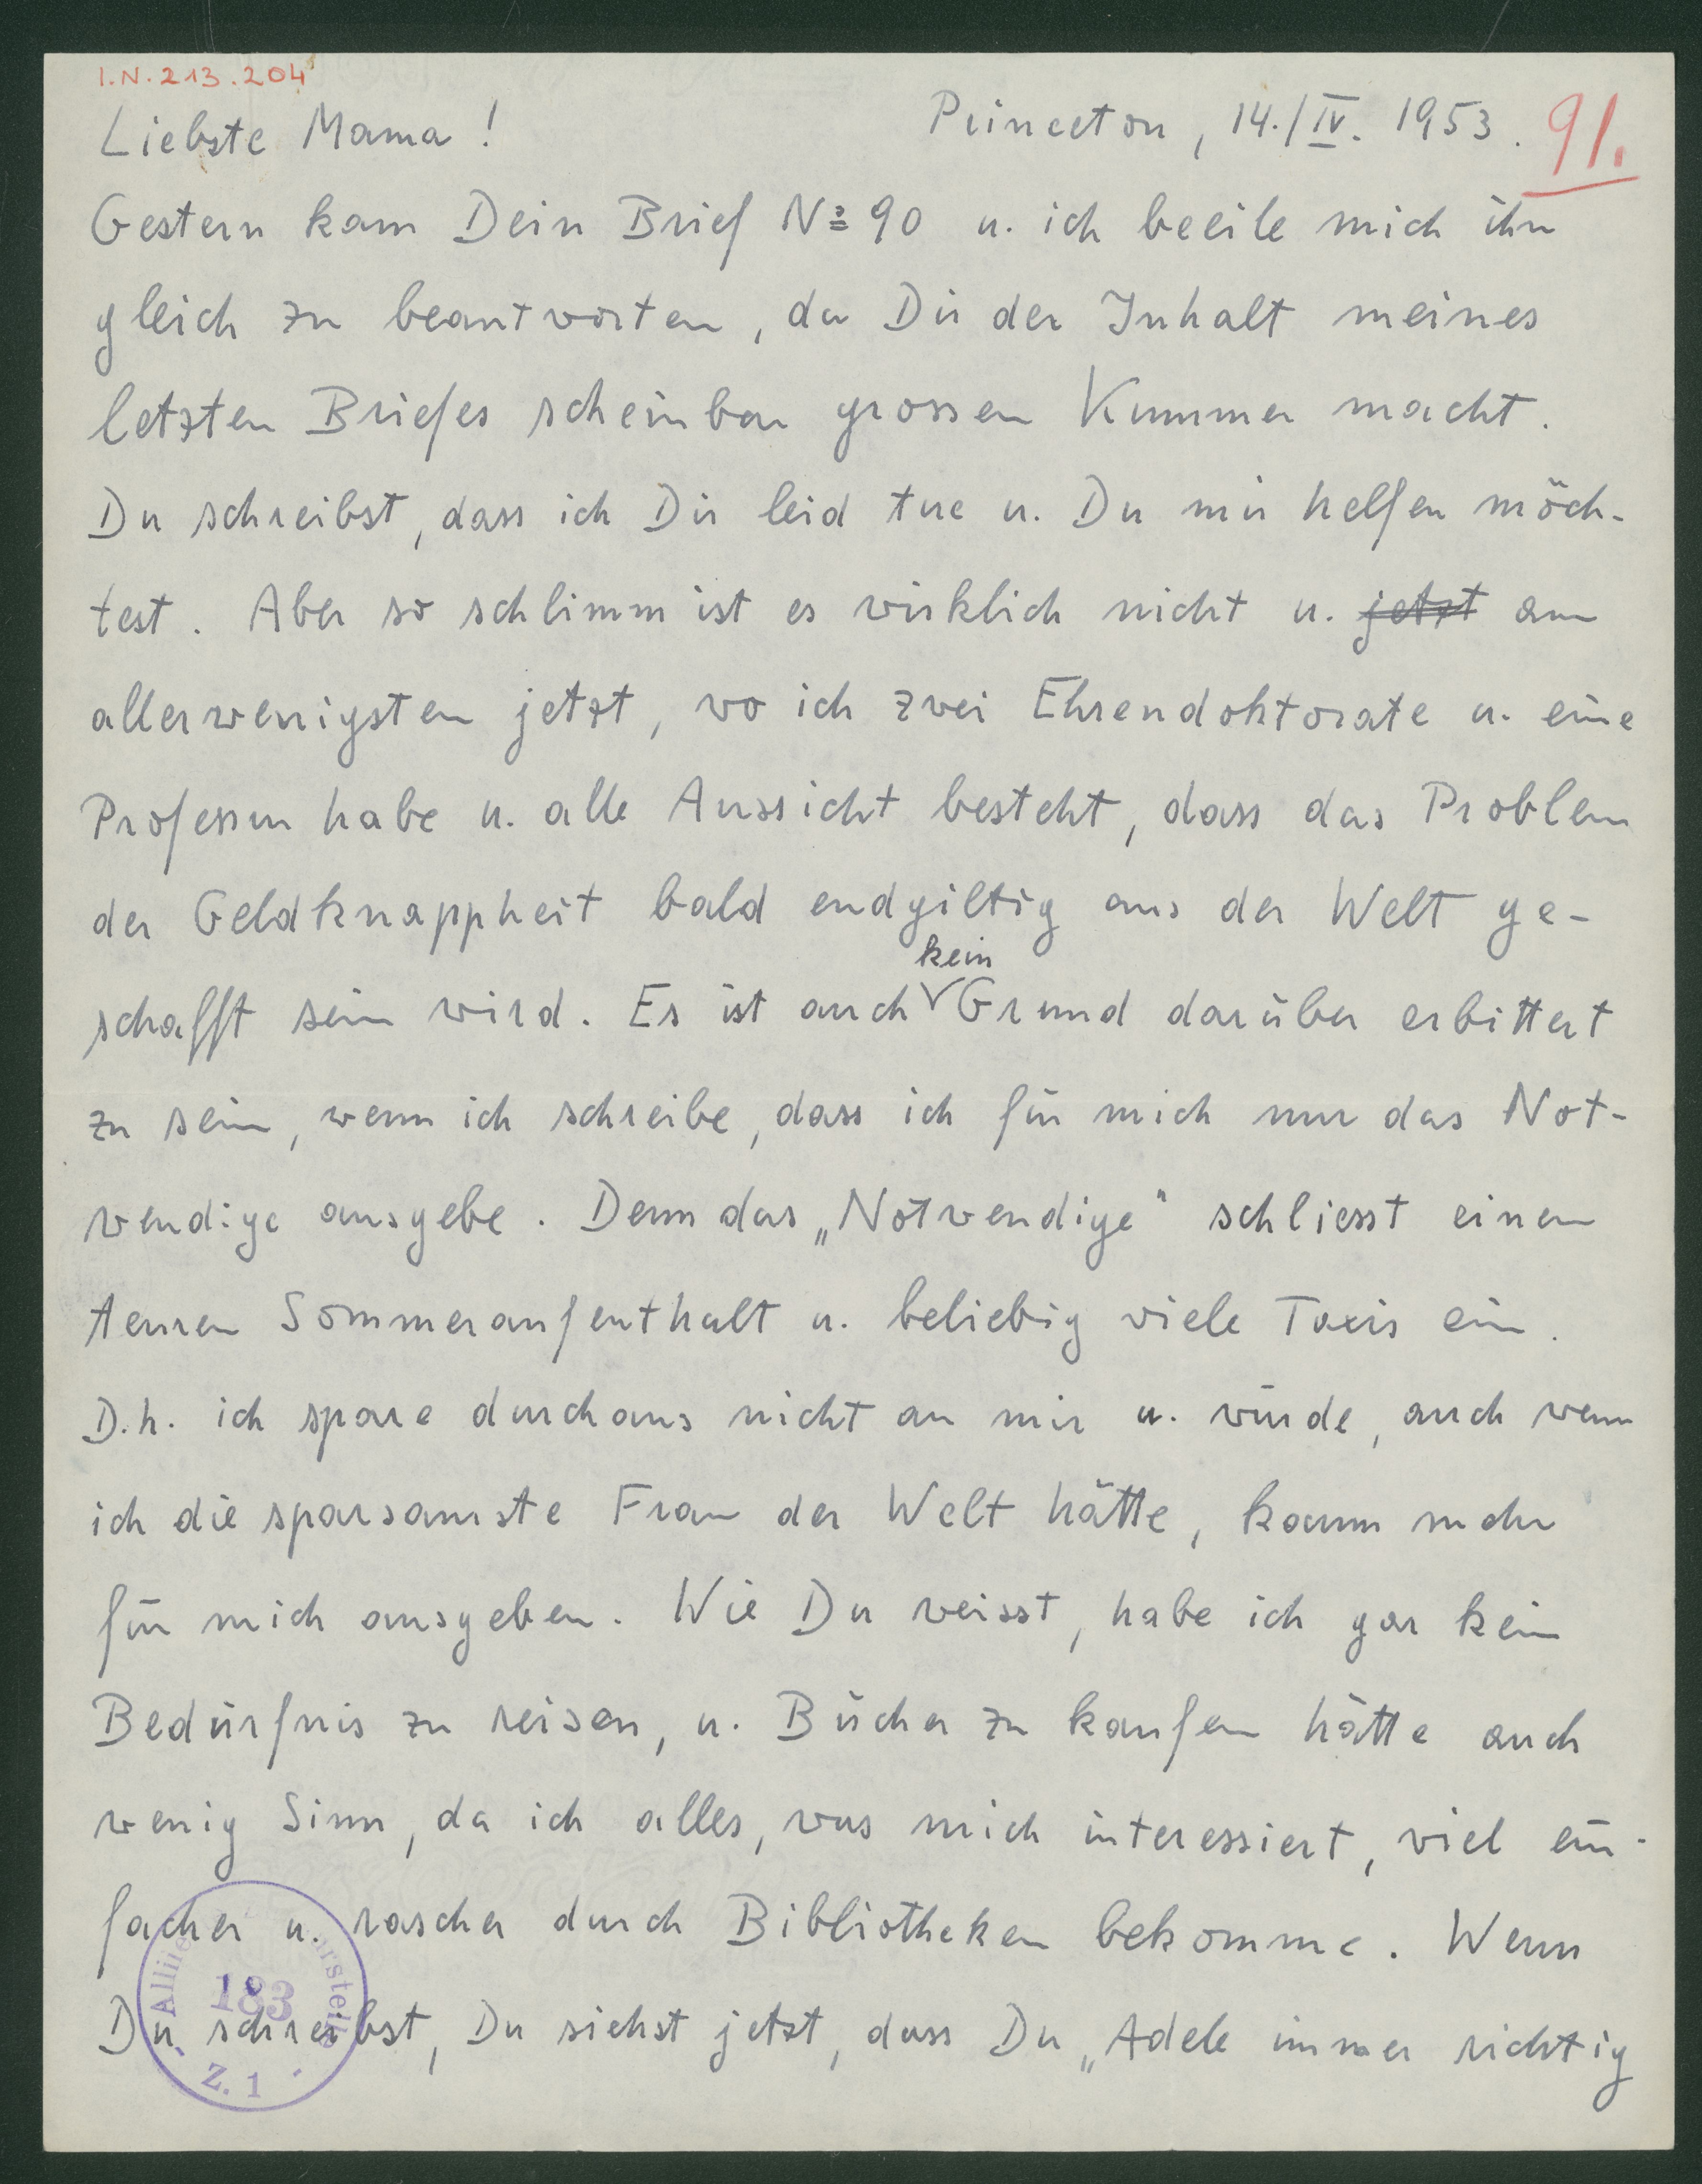 I.N. 213.204
Liebste Mama! Princeton, 14./IV. 1953. 91.
Gestern kam Dein Brief No 90 u. ich beeile mich ihn
gleich zu beantworten, da Dir der Inhalt meines
letzten Briefes scheinbar grossen Kummer macht.
Du schreibst, dass ich Dir leid tue u. Du mir helfen möch-
test. Aber so schlimm ist es wirklich nicht u. jetzt am
allerwenigsten jetzt, wo ich zwei Ehrendoktorate u. eine
Professur habe u. alle Aussicht besteht, dass das Problem
der Geldknappheit bald endgiltig aus der Welt ge-
kein
schafft sein wird. Es ist auch Grund darüber erbittert
zu sein, wenn ich schreibe, dass ich für mich nur das Not-
wendige ausgebe. Denn das „Notwendige" schliesst einen
teuren Sommeraufenthalt u. beliebig viele Taxis ein.
D.h. ich spare durchaus nicht an mir u. würde, auch wenn
ich die sparsamste Frau der Welt hätte, kaum mehr
für mich ausgeben. Wie Du weisst, habe ich gar kein
Bedürfnis zu reisen, u. Bücher zu kaufen hätte auch
wenig Sinn, da ich alles, was mich interessiert, viel ein-
facher u. rascher durch Bibliotheken bekomme. Wenn
Du schreibst, Du siehst jetzt, dass Du „Adele immer richtig
183
Z. 1